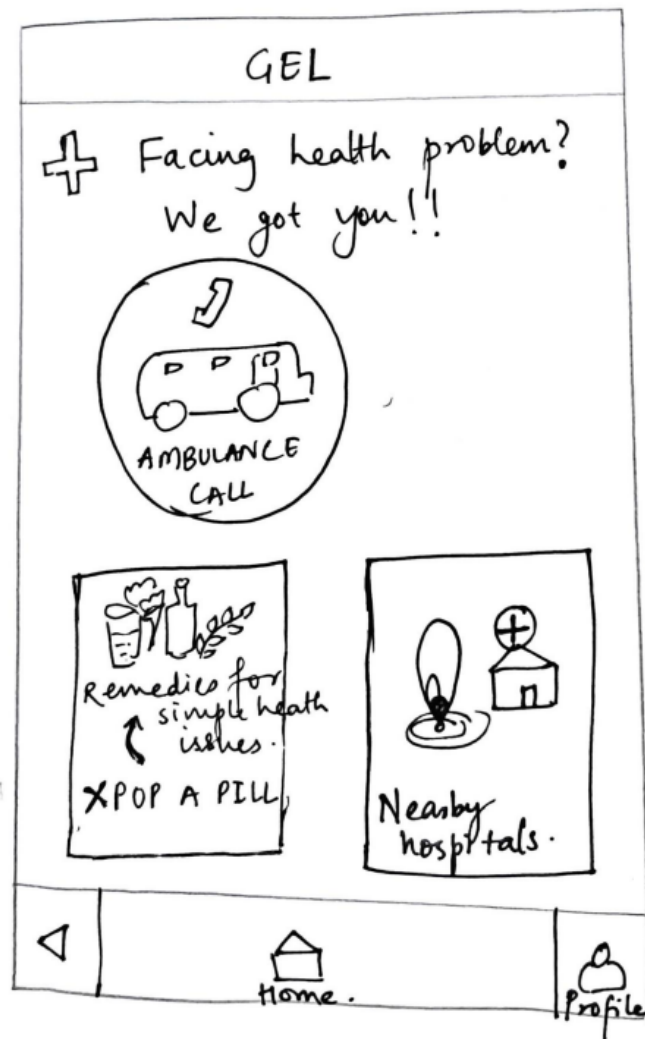 GEL
Facing health problem?
We got you!!
AMBULANCE
CALL
Remedies for
simple heath
issues.
XPOP A PILL
Nearby
hospitals.
Home.
Profile